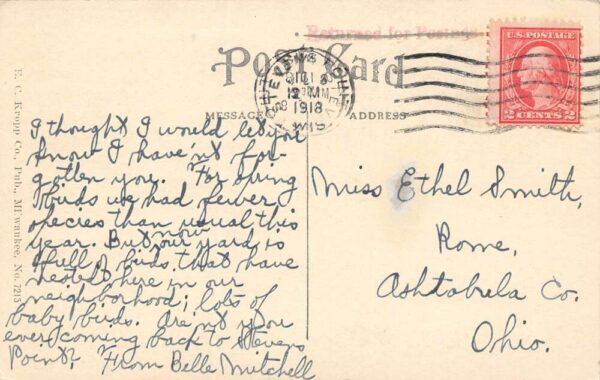 Returned for Postage
Post Card
STEVENS POINT
12 M
1918
WIS.
U.S. POSTAGE
2 CENTS 2
MESSAGE
ADDRESS
E. C. Kropp Co., Pub., Milwaukee, No. 7215
I thought I would let you
know I have'nt for-
gotten you. For spring
birds we had fewer
species than usual this
year. But now our yard is
full of birds that have
nested here in our
neighborhood; lots of
baby birds. Are n't you
ever coming back to Stevens
Point? From Belle Mitchell
Miss Ethel Smith,
Rome,
Ashtabula Co.
Ohio.